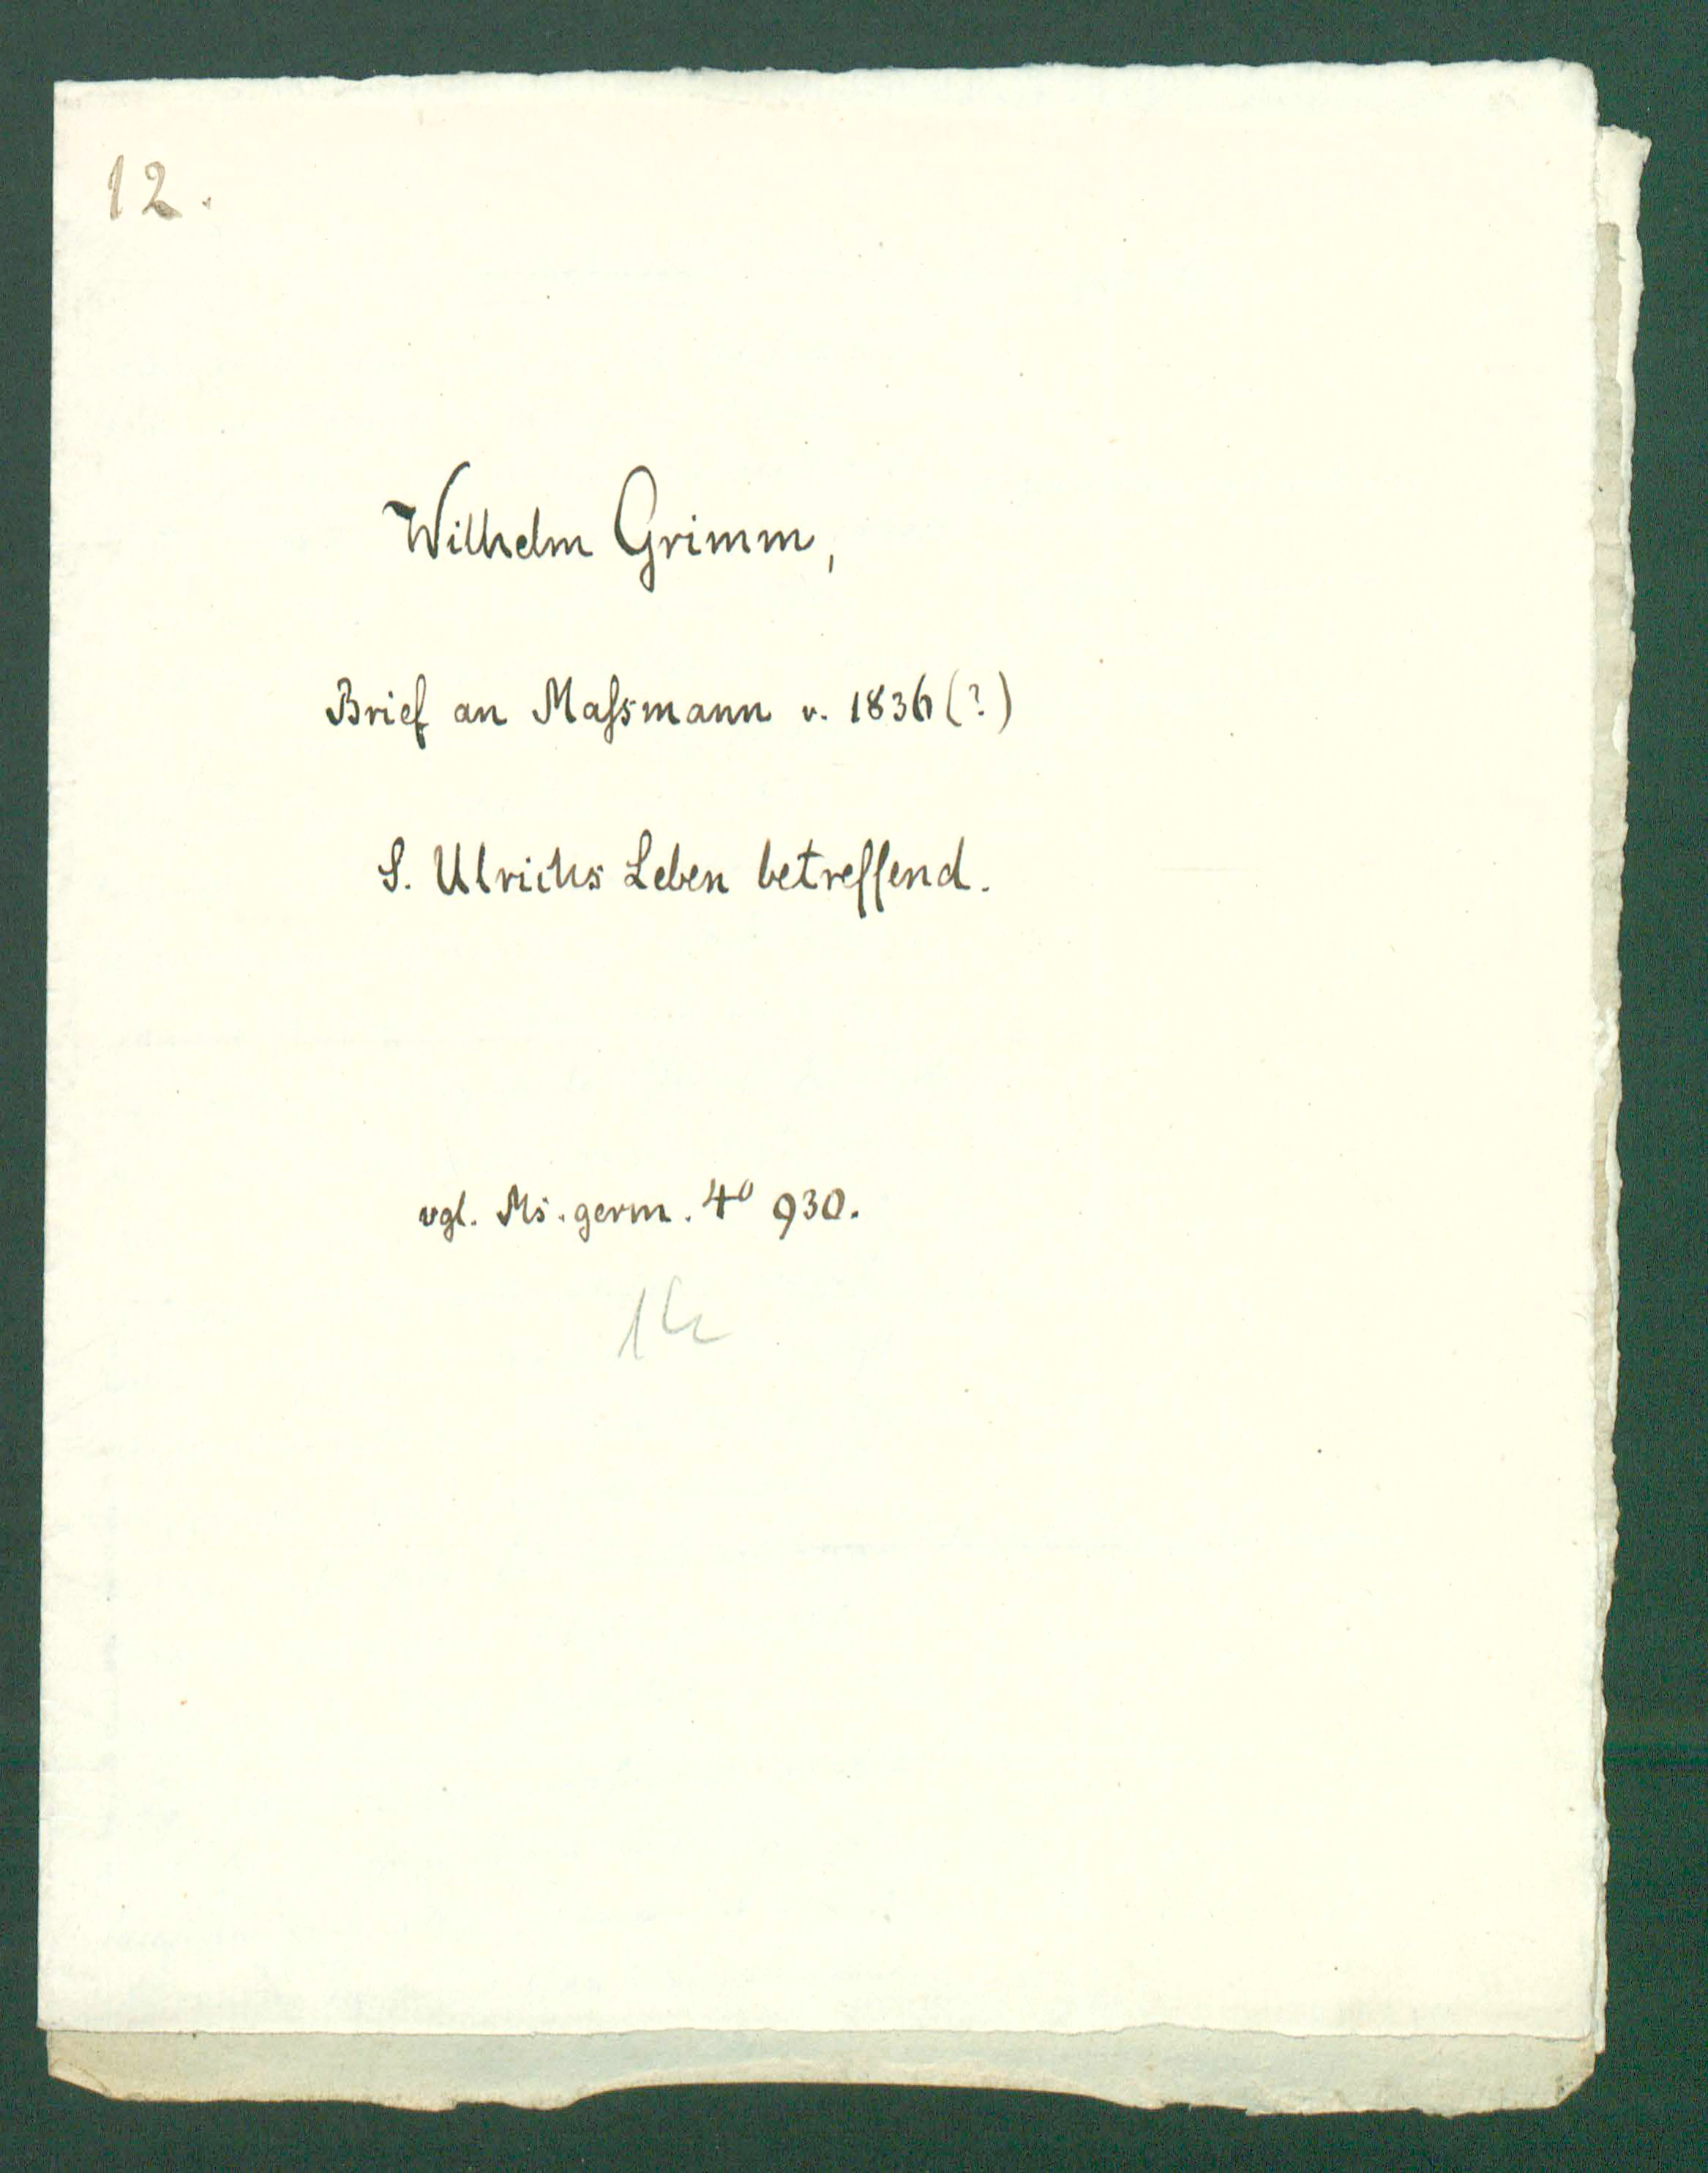 12.
Wilhelm Grimm,
Brief an Maſsmann v. 1836 (?)
S. Ulrichs Leben betreffend.
vgl. Ms. germ. 4⁰ 930.